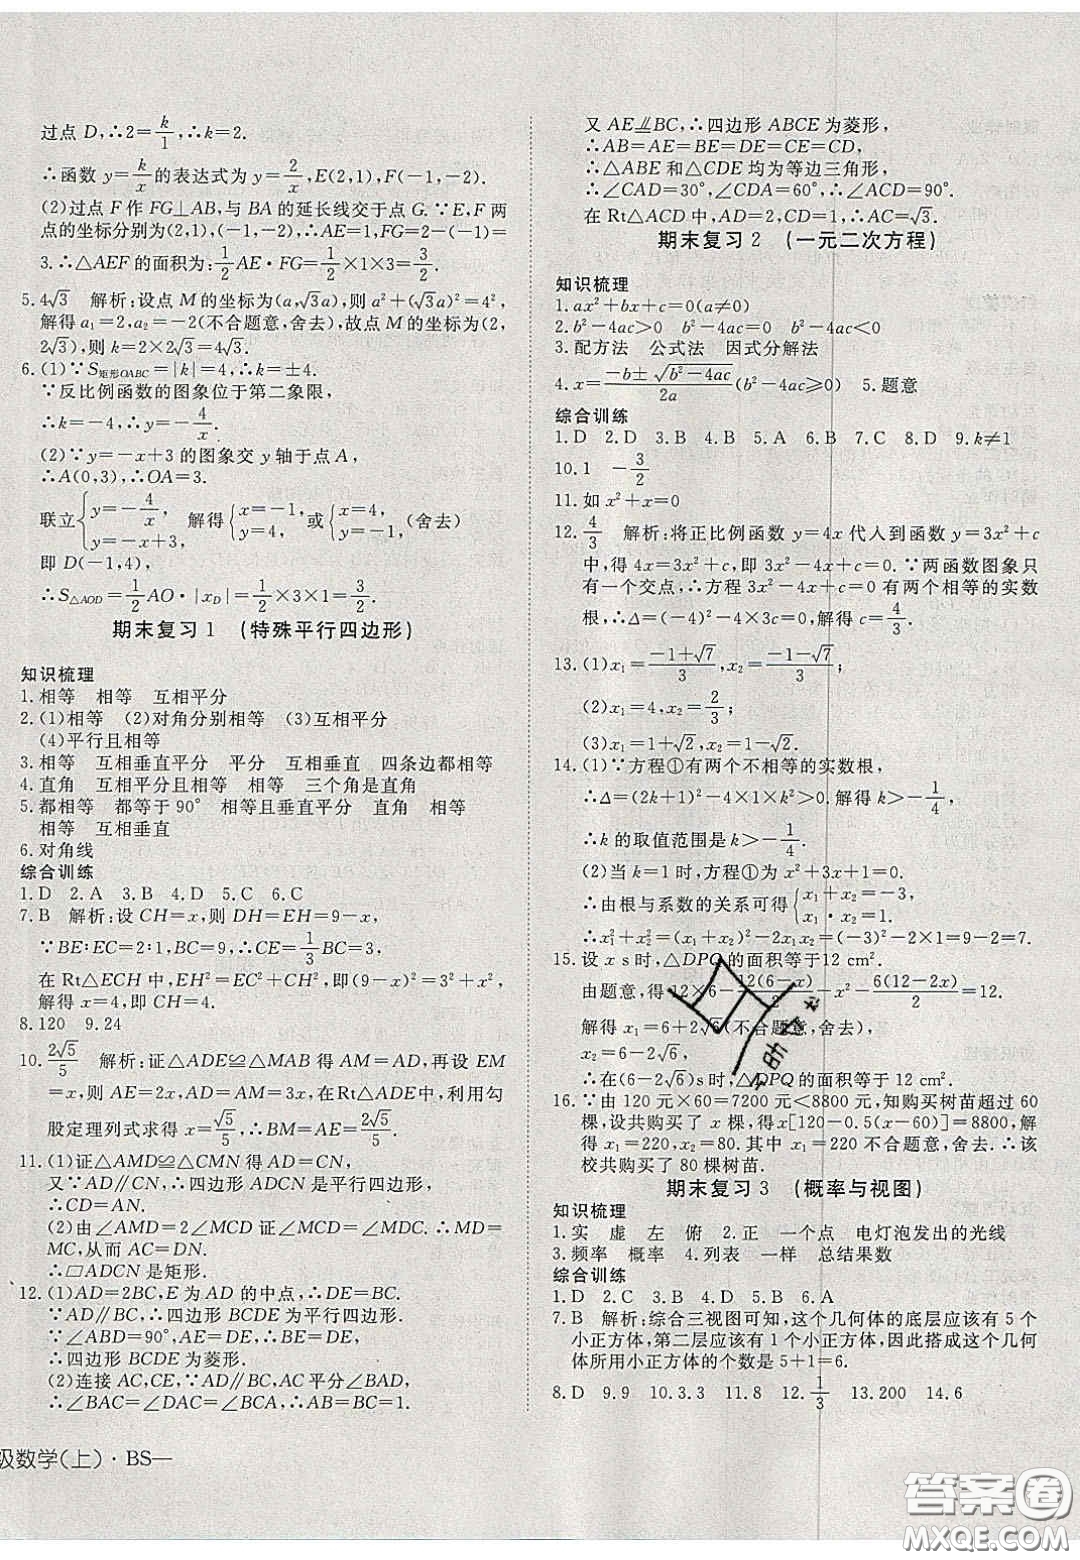 过点 D,∴2=k/1,∴k=2.
∴函数 y=k/x 的表达式为 y=2/x,E(2,1),F(-1,-2).
(2)过点 F 作 FG⊥AB,与 BA 的延长线交于点 G.∵E,F 两
点的坐标分别为(2,1),(-1,-2),∴AE=1,FG=2-(-1)=
3.∴△AEF 的面积为:1/2 AE·FG=1/2×1×3=3/2.
5.4√3 解析:设点 M 的坐标为(a,√3a),则 a²+(√3a)²=4²,
解得 a₁=2,a₂=-2(不合题意,舍去),故点 M 的坐标为(2,
2√3),则 k=2×2√3=4√3.
6.(1)∵S矩形OABC=|k|=4,∴k=±4.
∵反比例函数的图象位于第二象限,
∴k=-4,∴y=-4/x.
(2)∵y=-x+3 的图象交 y 轴于点 A,
∴A(0,3),∴OA=3.
联立{y=-4/x, y=-x+3, 解得{x=-1, y=4, 或{x=4, y=-1,(舍去)
即 D(-1,4),
∴S△AOD=1/2 AO·|xD|=1/2×3×1=3/2.
期末复习 1 (特殊平行四边形)
知识梳理
1.相等 相等 互相平分
2.(1)相等 (2)对角分别相等 (3)互相平分
(4)平行且相等
3.相等 互相垂直平分 平分 互相垂直 四条边都相等
4.直角 互相平分且相等 相等 三个角是直角
5.都相等 都等于 90° 相等且垂直平分 直角 相等
相等 互相垂直
6.对角线
综合训练
1.D 2.A 3.B 4.D 5.C 6.C
7.B 解析:设 CH=x,则 DH=EH=9-x,
∵BE:EC=2:1,BC=9,∴CE=1/3 BC=3.
在 Rt△ECH 中,EH²=EC²+CH²,即(9-x)²=3²+x²,
解得 x=4,即 CH=4.
8.120 9.24
10.2√5/5 解析:证△ADE≌△MAB 得 AM=AD,再设 EM
=x,则 AE=2x,AD=AM=3x,在Rt△ADE中,利用勾
股定理列式求得 x=√5/5,∴BM=AE=2√5/5.
11.(1)证△AMD≌△CMN 得 AD=CN,
又∵AD∥CN,∴四边形 ADCN 是平行四边形,
∴CD=AN.
(2)由∠AMD=2∠MCD 证∠MCD=∠MDC. ∴MD=
MC,从而 AC=DN.
∴□ADCN 是矩形.
12.(1)AD=2BC,E 为 AD 的中点,∴DE=BC.
∵AD∥BC,∴四边形 BCDE 为平行四边形.
∵∠ABD=90°,AE=DE,∴BE=DE,
∴四边形 BCDE 为菱形.
(2)连接 AC,CE,∵AD∥BC,AC 平分∠BAD,
∴∠BAC=∠DAC=∠BCA,∴AB=BC,
级数学(上)·BS—
又 AE⫽BC,∴四边形 ABCE 为菱形,
∴AB=AE=BE=DE=CE=CD,
∴△ABE 和△CDE 均为等边三角形,
∴∠CAD=30°,∠CDA=60°,∴∠ACD=90°.
在 Rt△ACD 中,AD=2,CD=1,∴AC=√3.
期末复习 2 (一元二次方程)
知识梳理
1.ax²+bx+c=0(a≠0)
2.b²-4ac>0 b²-4ac=0 b²-4ac<0
3.配方法 公式法 因式分解法
4.x=(-b±√(b²-4ac))/2a(b²-4ac≥0) 5.题意
综合训练
1.D 2.D 3.B 4.B 5.A 6.B 7.C 8.D 9.k≠1
10.1 -3/2
11.如 x²+x=0
12.4/3 解析:将正比例函数 y=4x 代人到函数 y=3x²+c
中,得 4x=3x²+c,即 3x²-4x+c=0.∵两函数图象只
有一个交点,∴方程 3x²-4x+c=0 有两个相等的实数
根,∴Δ=(-4)²-4×3c=0,解得 c=4/3.
13.(1)x₁=(-1+√7)/3,x₂=(-1-√7)/3;
(2)x₁=4,x₂=2/3;
(3)x₁=1+√2,x₂=1-√2.
14.(1)∵方程①有两个不相等的实数根,
∴Δ=(2k+1)²-4×1×k²>0.解得 k>-1/4,
∴k 的取值范围是 k>-1/4.
(2)当 k=1 时,方程①为 x²+3x+1=0,
∴由根与系数的关系可得{x₁+x₂=-3, x₁·x₂=1,
∴x₁²+x₂²=(x₁+x₂)²-2x₁x₂=(-3)²-2×1=9-2=7.
15.设 x s时,△DPQ 的面积等于12 cm².
由题意,得12×6-12(6-x)/2-x²-6(12-2x)/2=12.
解得 x₁=6+2√6(不合题意,舍去),
x₂=6-2√6.
∴在(6-2√6)s时,△DPQ的面积等于 12 cm².
16.∵由 120 元×60=7200 元<8800 元,知购买树苗超过 60
棵,设共购买了 x 棵,得 x[120-0.5(x-60)]=8800,解
得 x₁=220,x₂=80. 其中 x₁=220 不合题意,舍去.∴该
校共购买了 80 棵树苗.
期末复习 3 (概率与视图)
知识梳理
1.实 虚 左 俯 2.正 一个点 电灯泡发出的光线
3.频率 概率 4.列表 一样 总结果数
综合训练
1.D 2.C 3.B 4.D 5.D 6.A
7.B 解析:综合三视图可知,这个几何体的底层应该有 5 个
小正方体,第二层应该有 1 个小正方体,因此搭成这个几何
体所用小正方体的个数是 5+1=6.
8.D 9.9 10.3.3 11.8 12.1/3 13.200 14.6
答案圈
MXQE.COM